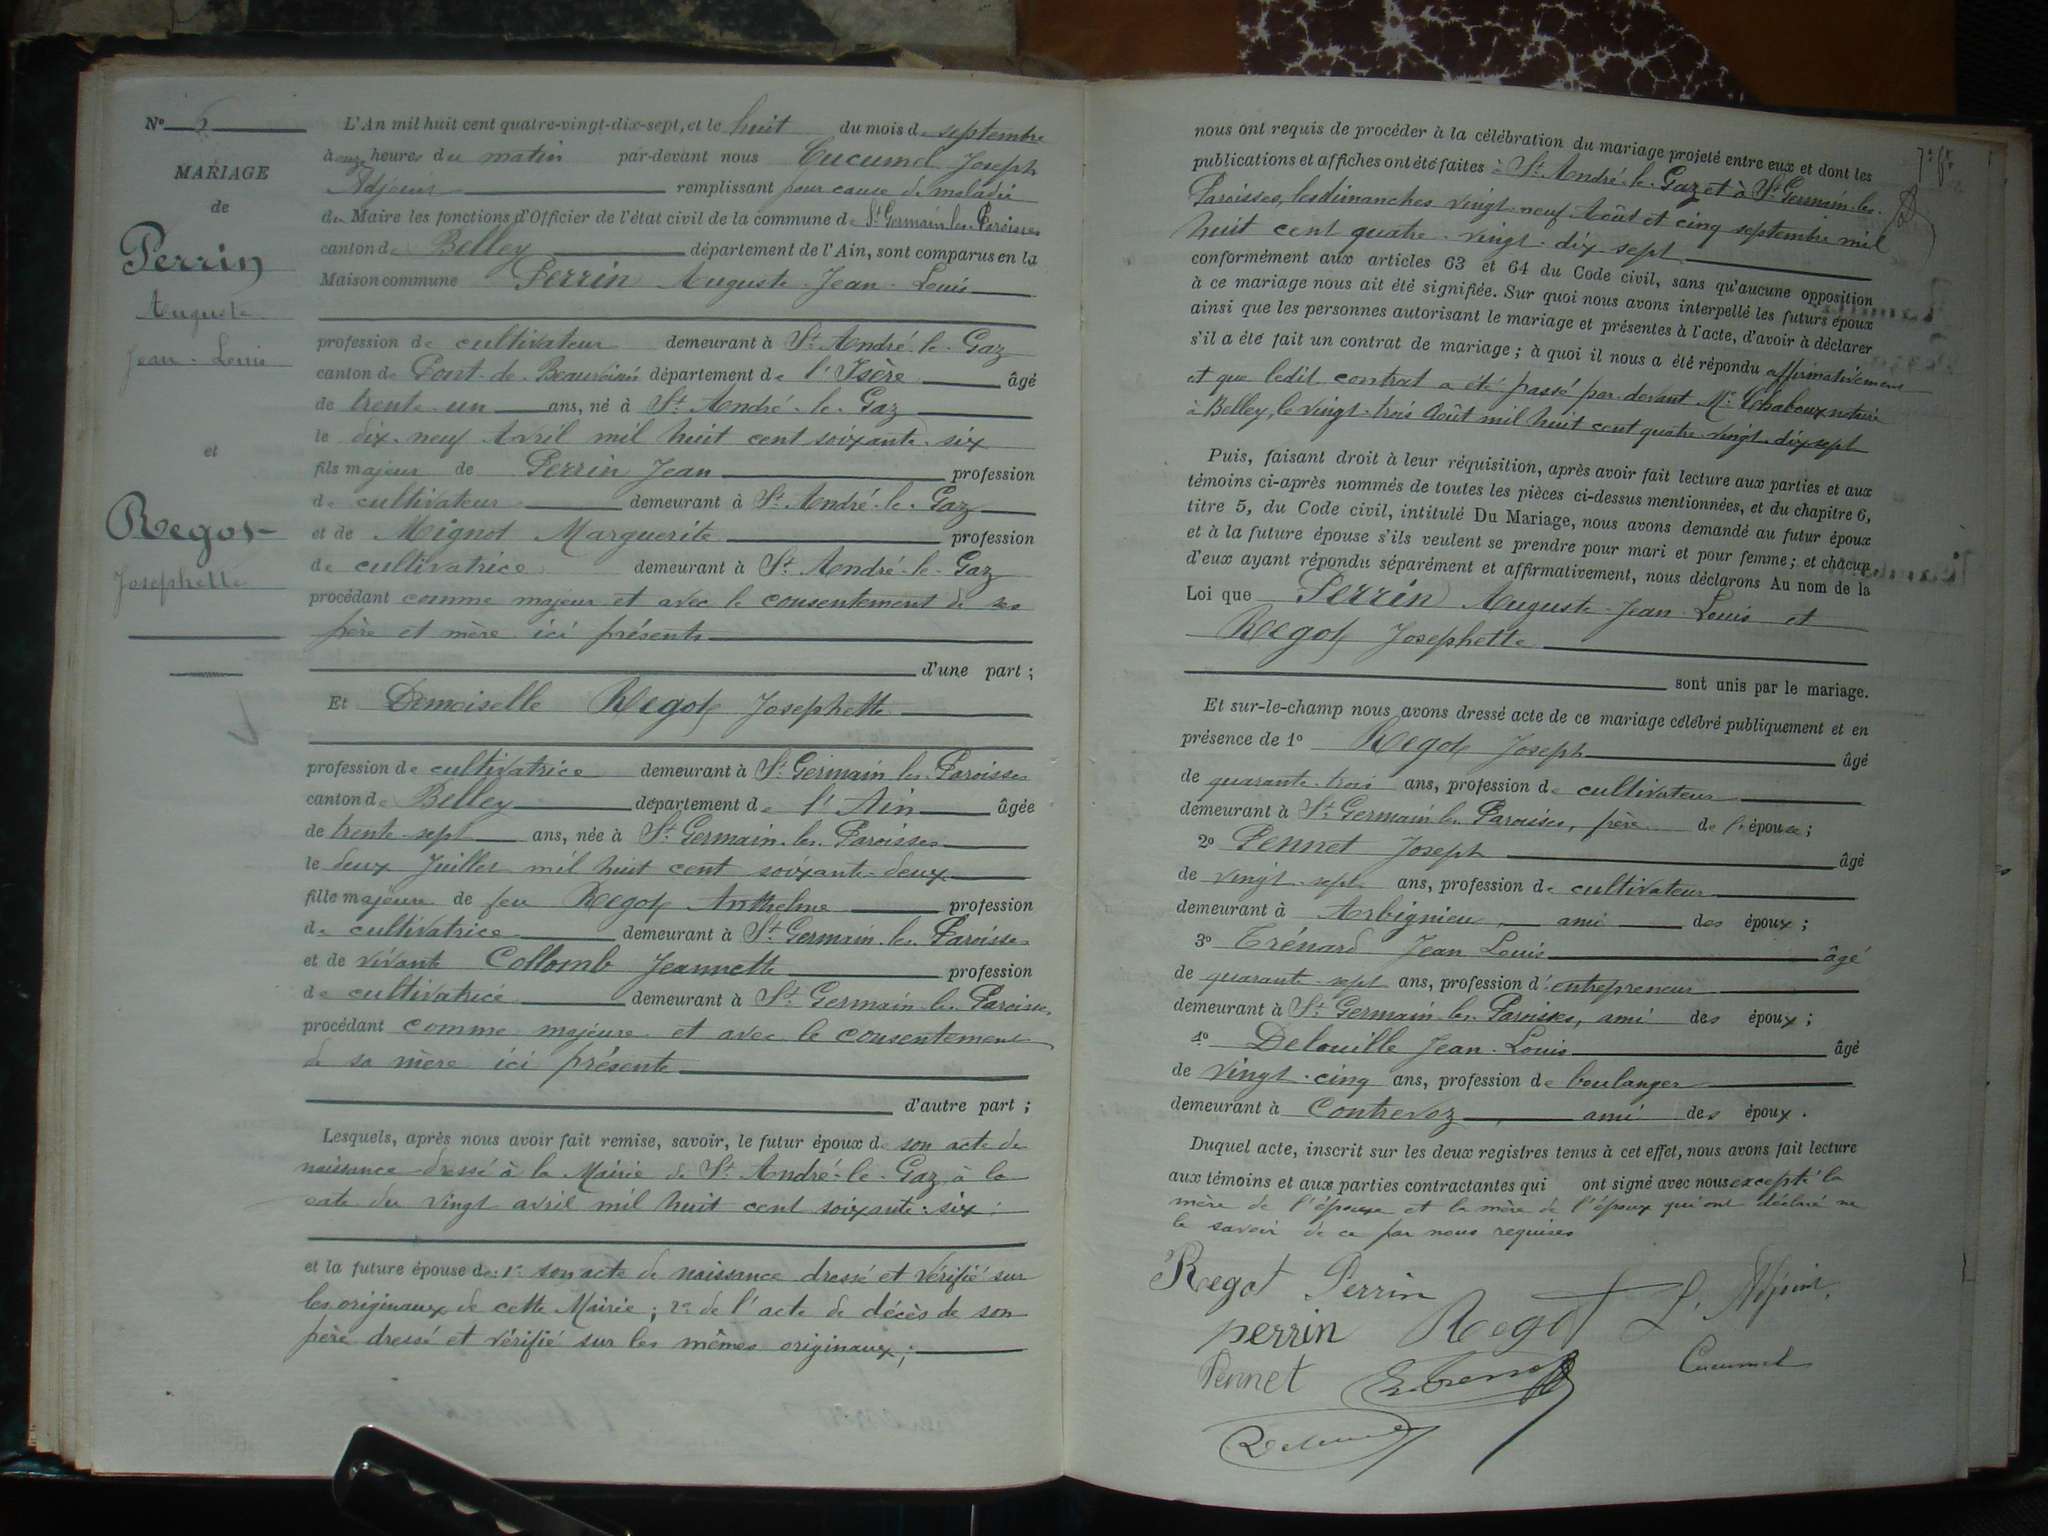 N° 5
MARIAGE
de
Perrin
Auguste
Jean-Louis
et
Regot
Josephette
L'An mil huit cent quatre-vingt-dix-sept, et le huit du mois de septembre
à onze heures du matin par-devant nous Cucumel Joseph
Adjoint remplissant pour cause de maladie
du Maire les fonctions d'Officier de l'état civil de la commune de St Germain les Paroisses
canton de Belley département de l'Ain, sont comparus en la
Maison commune Perrin Auguste Jean-Louis
profession de cultivateur demeurant à St André-le-Gaz
canton de Pont-de-Beauvoisin département de l'Isère âgé
de trente-un ans, né à St André-le-Gaz
le dix-neuf Avril mil huit cent soixante-six
fils majeur de Perrin Jean profession
de cultivateur demeurant à St André-le-Gaz
et de Mignot Marguerite profession
de cultivatrice demeurant à St André-le-Gaz
procédant comme majeur et avec le consentement de ses
père et mère ici présents
d'une part ;
Et Demoiselle Regot Josephette
profession de cultivatrice demeurant à St Germain les Paroisses
canton de Belley département de l'Ain âgée
de trente-sept ans, née à St Germain-les-Paroisses
le deux Juillet mil huit cent soixante-deux
fille majeure de feu Regot Anthelme profession
de cultivatrice demeurant à St Germain-les-Paroisses
et de vivante Collomb Jeannette profession
de cultivatrice demeurant à St Germain-les-Paroisses
procédant comme majeure et avec le consentement
de sa mère ici présente
d'autre part ;
Lesquels, après nous avoir fait remise, savoir, le futur époux de son acte de
naissance dressé à la Mairie de St André-le-Gaz à la
date du vingt avril mil huit cent soixante-six ;
et la future épouse de: 1° son acte de naissance dressé et vérifié sur
les originaux de cette Mairie ; 2° de l'acte de décès de son
père dressé et vérifié sur les mêmes originaux ;
nous ont requis de procéder à la célébration du mariage projeté entre eux et dont les
publications et affiches ont été faites à St André-le-Gaz et à St Germain-les-
Paroisses, les dimanches vingt-neuf Août et cinq septembre mil
huit cent quatre-vingt-dix-sept
conformément aux articles 63 et 64 du Code civil, sans qu'aucune opposition
à ce mariage nous ait été signifiée. Sur quoi nous avons interpellé les futurs époux
ainsi que les personnes autorisant le mariage et présentes à l'acte, d'avoir à déclarer
s'il a été fait un contrat de mariage ; à quoi il nous a été répondu affirmativement
et que ledit contrat a été passé par-devant Me Chaboux notaire
à Belley, le vingt-trois Août mil huit cent quatre-vingt-dix-sept
Puis, faisant droit à leur réquisition, après avoir fait lecture aux parties et aux
témoins ci-après nommés de toutes les pièces ci-dessus mentionnées, et du chapitre 6,
titre 5, du Code civil, intitulé Du Mariage, nous avons demandé au futur époux
et à la future épouse s'ils veulent se prendre pour mari et pour femme ; et chacun
d'eux ayant répondu séparément et affirmativement, nous déclarons Au nom de la
Loi que Perrin Auguste-Jean-Louis et
Regot Josephette
sont unis par le mariage.
Et sur-le-champ nous avons dressé acte de ce mariage célébré publiquement et en
présence de 1° Regot Joseph âgé
de quarante-trois ans, profession de cultivateur
demeurant à St Germain-les-Paroisses, frère de l'épouse ;
2° Pennet Joseph âgé
de vingt-sept ans, profession de cultivateur
demeurant à Arbignieu, ami des époux ;
3° Trénard Jean Louis âgé
de quarante-sept ans, profession d'entrepreneur
demeurant à St Germain-les-Paroisses, ami des époux ;
4° Delouille Jean-Louis âgé
de vingt-cinq ans, profession de boulanger
demeurant à Contrevoz, ami des époux.
Duquel acte, inscrit sur les deux registres tenus à cet effet, nous avons fait lecture
aux témoins et aux parties contractantes qui ont signé avec nous excepté la
mère de l'épouse et la mère de l'époux qui ont déclaré ne
le savoir de ce par nous requises
Regot Perrin
perrin Regot L. Adjoint,
Pennet Cucumel